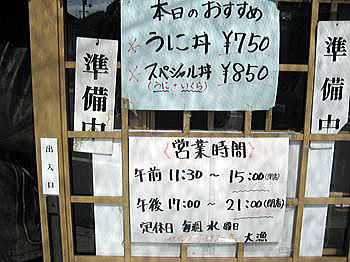 本日のおすすめ
※ うに丼 ¥750
※ スペシャル丼 ¥850
(うに・いくら)
準備中
準備中
出入口
営業時間
午前 11:30 ~ 15:00(閉店)
午後 17:00 ~ 21:00(閉店)
定休日 毎週 水曜日
大漁